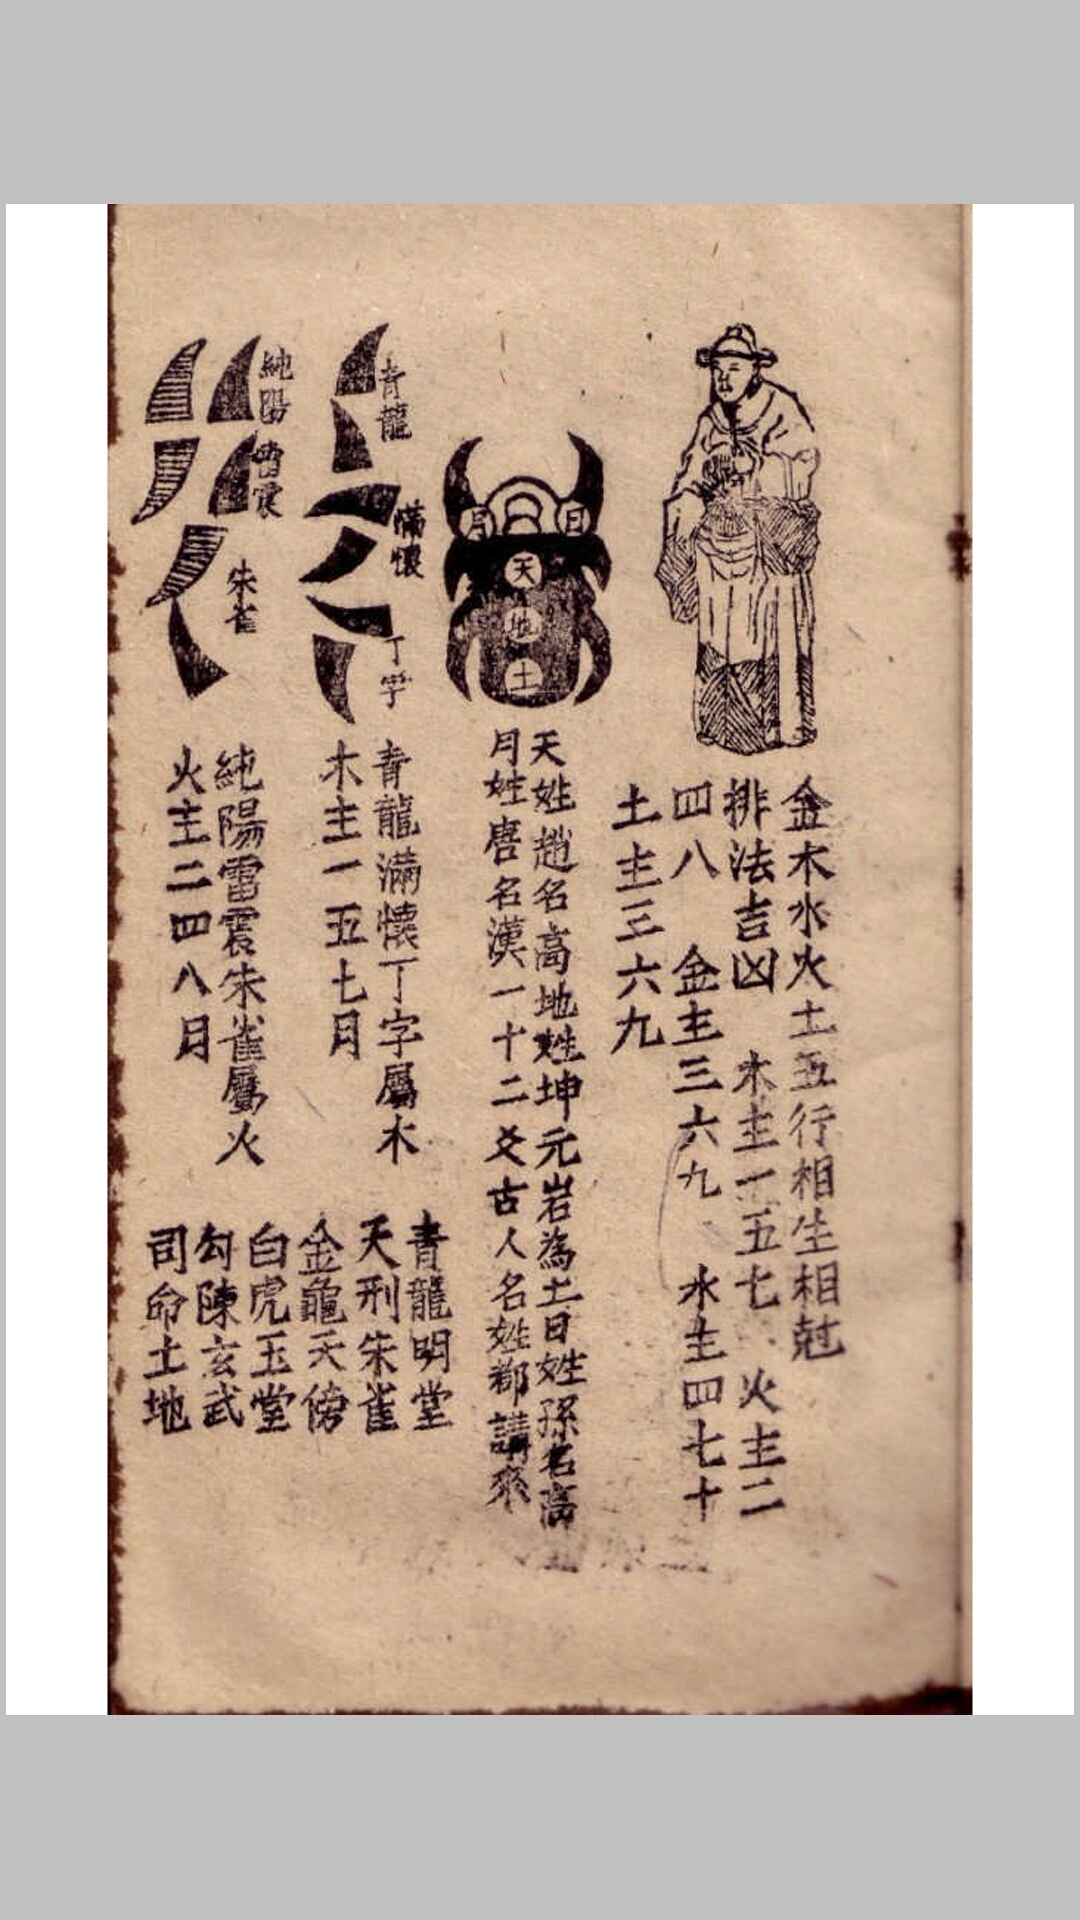 金木水火土五行相生相尅
排法吉凶 木主一五七 火主二
四八 金主三六九 水主四七十
土主三六九
月 日
天
地
土
天姓趙名高地姓坤元岩為土日姓孫名高
月姓唐名漢一十二爻古人名姓都請來
青龍
滿懷
丁字
青龍滿懷丁字屬木
木主一五七月
純陽
雷震
朱雀
純陽雷震朱雀屬火
火主二四八月
青龍明堂
天刑朱雀
金龜天傍
白虎玉堂
勾陳玄武
司命土地